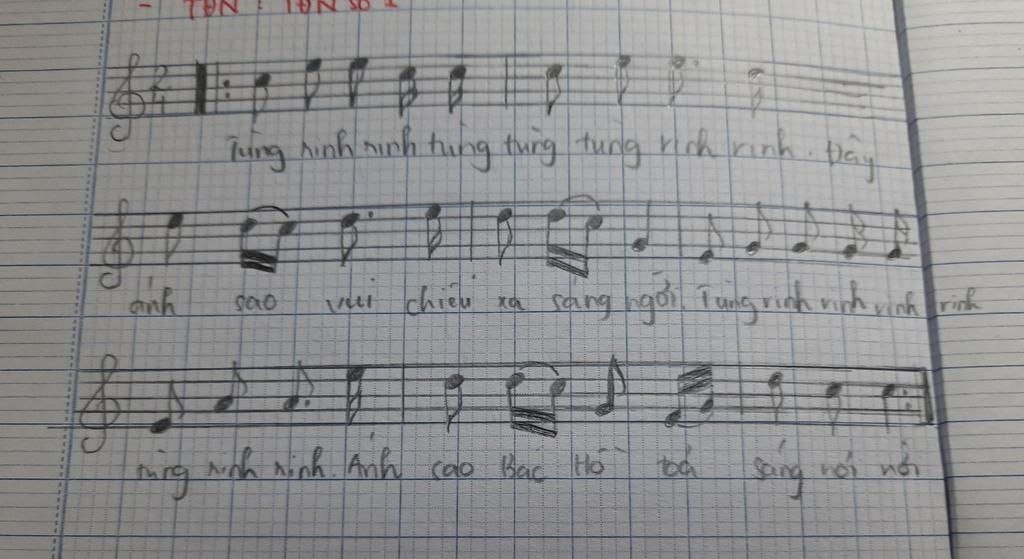 - TĐN : TĐN số 1
2 4
Tùng rinh rinh tùng tùng tùng rinh rinh. Đây
ánh sao vui chiếu xa sáng ngời. Tùng rinh rinh rinh rinh
tùng rinh rinh. Ánh sao Bác Hồ toả sáng nơi nơi